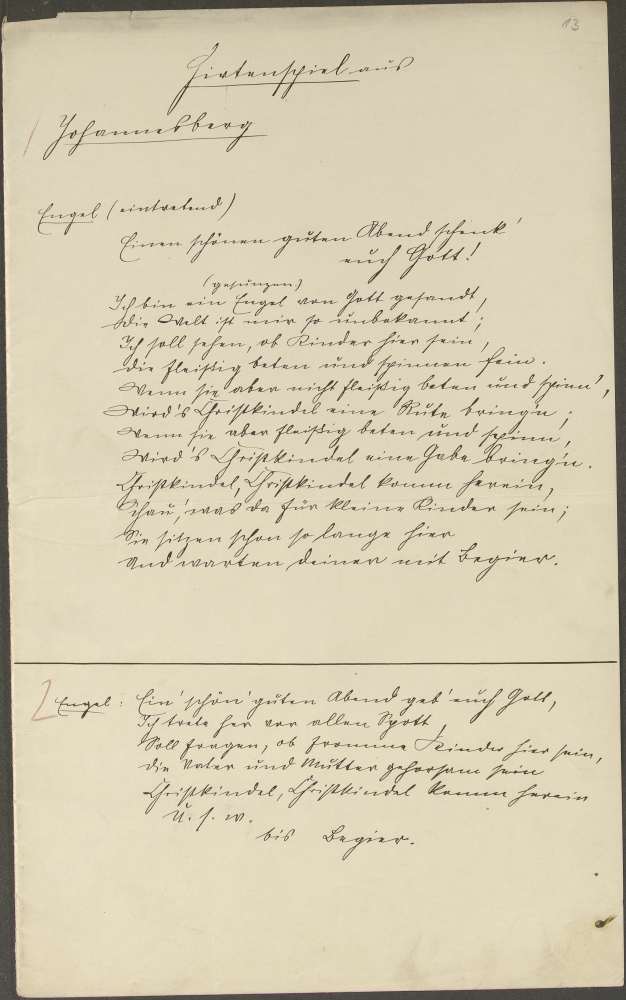 13
Hirtenspiel aus
Johannesberg
Engel (eintretend)
Einen schönen guten Abend schenk'
euch Gott!
(gesungen)
Ich bin ein Engel von Gott gesandt,
Die Welt ist mir so unbekannt;
Ich soll sehen, ob Kinder hier sein,
Die fleißig beten und spinnen fein.
Wenn sie aber nicht fleißig beten und spinn',
Wird's Christkindel eine Rute bring'n;
Wenn sie aber fleißig beten und spinn,
Wird's Christkindel eine Gabe bring'n.
Christkindel, Christkindel komm herein,
Schau', was da für kleine Kinder sein;
Sie sitzen schon so lange hier
Und warten deiner mit Begier.
2 Engel: Ein' schön' guten Abend geb' euch Gott,
Ich trete her vor allen Spott,
Soll fragen, ob fromme Kinder hier sein,
Die Vater und Mutter gehorsam sein
Christkindel, Christkindel komm herein
u. s. w.
bis Begier.